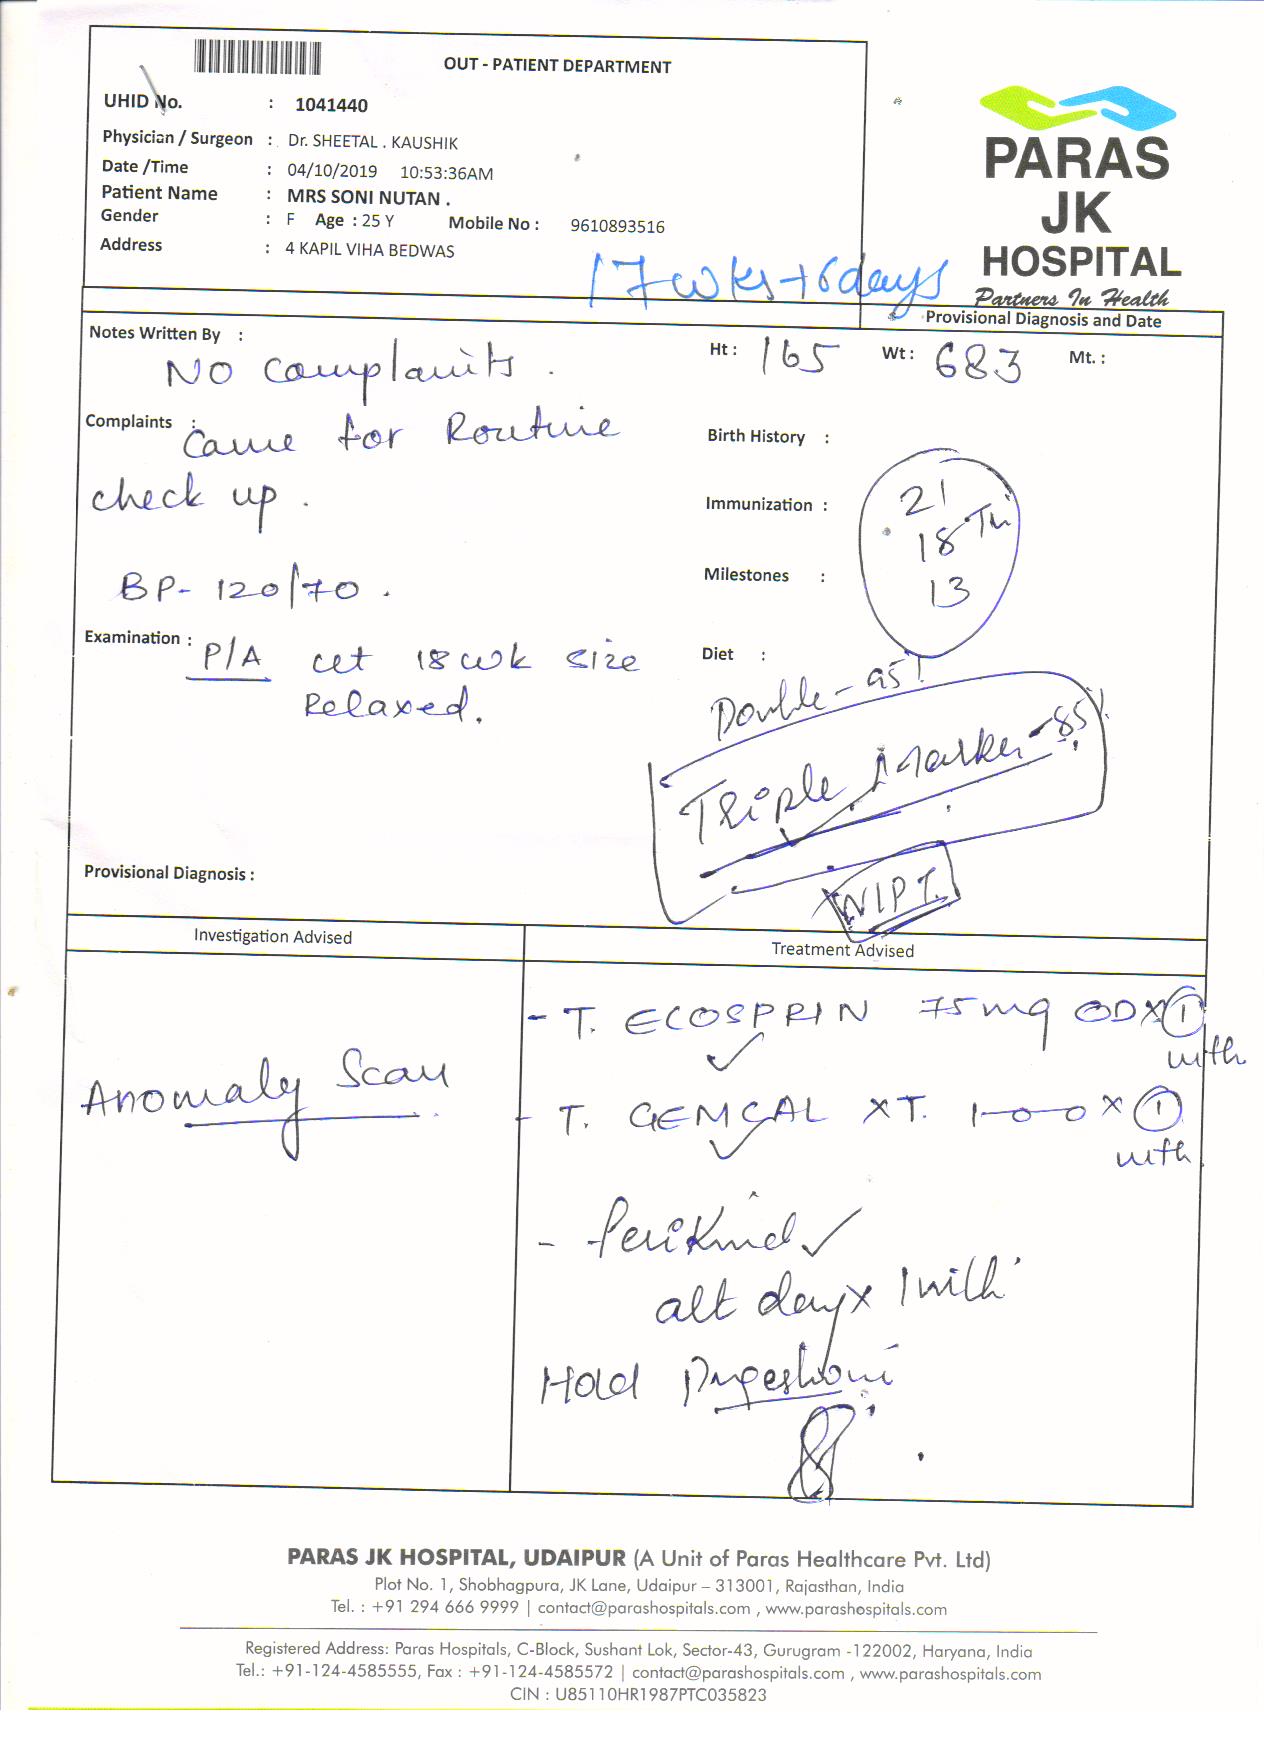 OUT - PATIENT DEPARTMENT
UHID No. : 1041440
Physician / Surgeon : Dr. SHEETAL . KAUSHIK
Date /Time : 04/10/2019 10:53:36AM
Patient Name : MRS SONI NUTAN .
Gender : F Age : 25 Y Mobile No : 9610893516
Address : 4 KAPIL VIHA BEDWAS
PARAS
JK
HOSPITAL
Partners In Health
17 wks+6days
Provisional Diagnosis and Date
Notes Written By :
NO Complaints .
Ht : 165 Wt : 683 Mt. :
Complaints :
Came for Routine
check up .
Birth History :
Immunization :
21
18
13
Milestones :
BP- 120/70 .
Examination :
P/A 18 wk size
Relaxed.
Diet :
Double -
Triple Marker - 85%
NIPT
Provisional Diagnosis :
Investigation Advised
Anomaly Scan
Treatment Advised
- T. ECOSPRIN 75mg OD x 1
- T. GEMCAL XT. 1-0-0 x 1
- PeriKind
alt day x 1
Hold
PARAS JK HOSPITAL, UDAIPUR (A Unit of Paras Healthcare Pvt. Ltd)
Plot No. 1, Shobhagpura, JK Lane, Udaipur – 313001, Rajasthan, India
Tel. : +91 294 666 9999 | contact@parashospitals.com , www.parashospitals.com
Registered Address: Paras Hospitals, C-Block, Sushant Lok, Sector-43, Gurugram -122002, Haryana, India
Tel.: +91-124-4585555, Fax : +91-124-4585572 | contact@parashospitals.com , www.parashospitals.com
CIN : U85110HR1987PTC035823